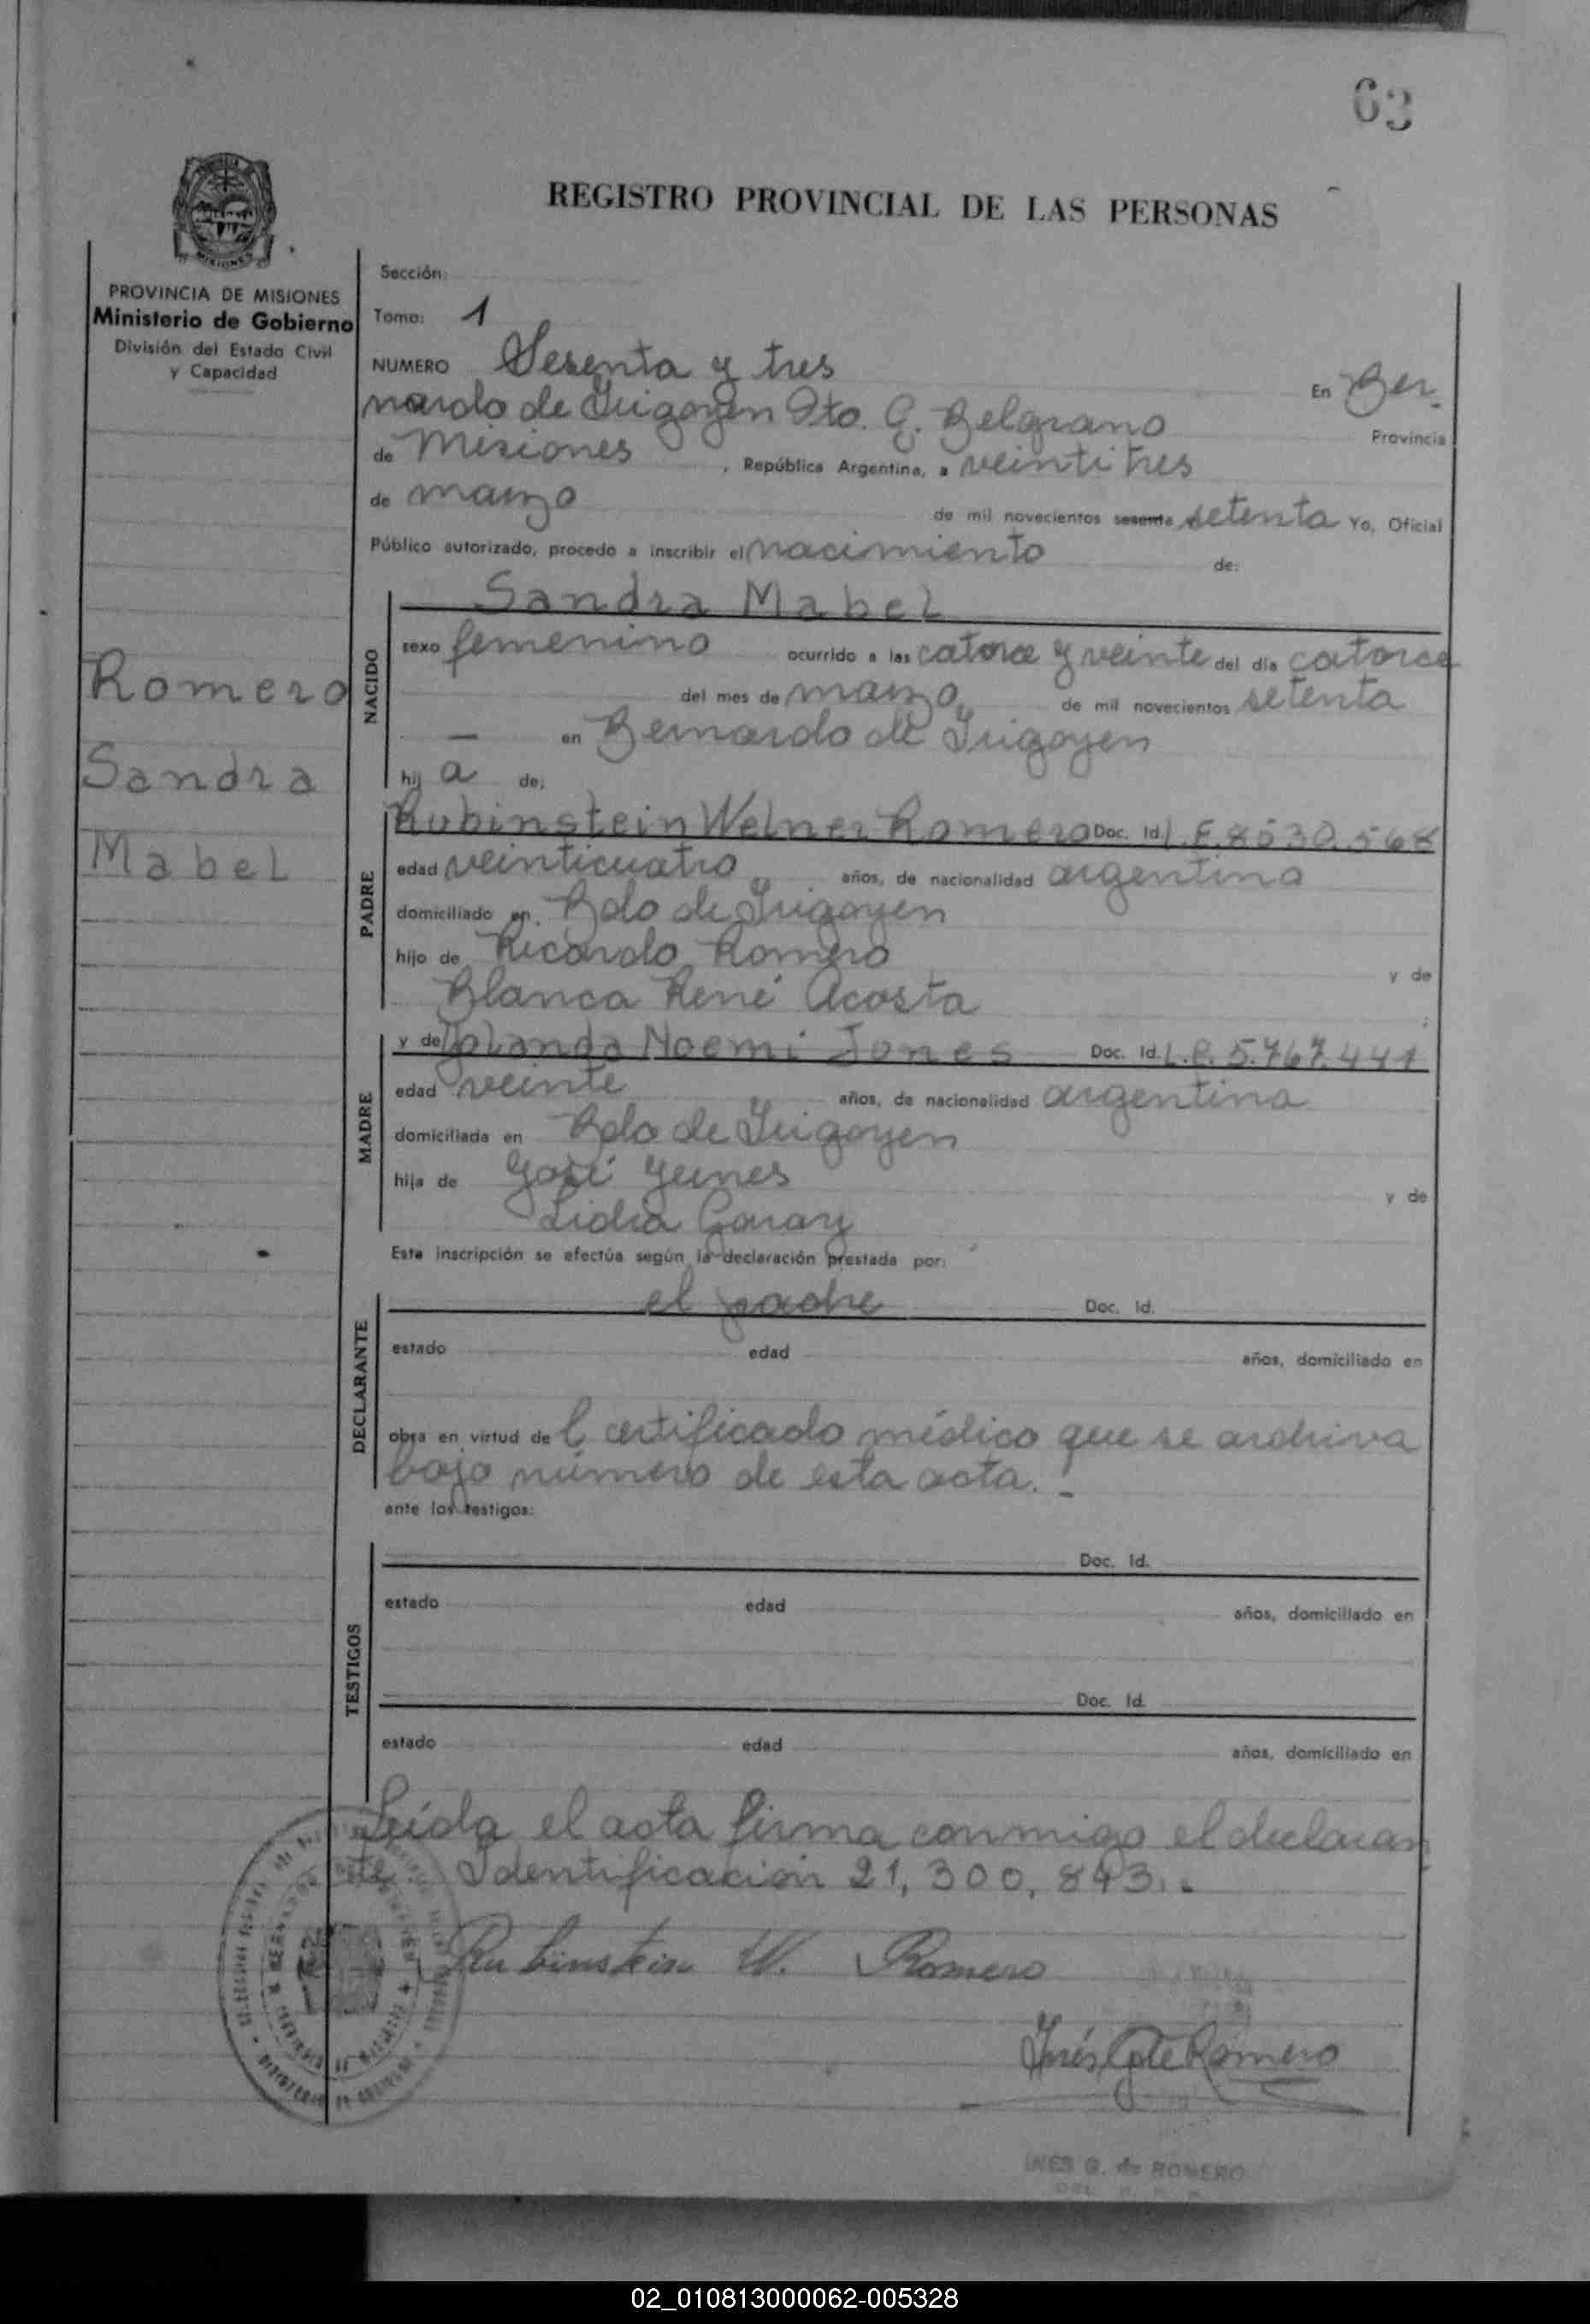 63
REGISTRO PROVINCIAL DE LAS PERSONAS
MISIONES
PROVINCIA DE MISIONES
Ministerio de Gobierno
División del Estado Civil
y Capacidad
Romero
Sandra
Mabel
Sección:
Tomo: 1
NUMERO Sesenta y tres En Ber
nardo de Irigoyen Dto. G. Belgrano Provincia
de Misiones, República Argentina, a veintitres
de marzo de mil novecientos sesenta setenta Yo, Oficial
Público autorizado, procedo a inscribir el nacimiento de:
NACIDO
Sandra Mabel
sexo femenino ocurrido a las catorce y veinte del día catorce
del mes de marzo de mil novecientos setenta
— en Bernardo de Irigoyen
hij a de:
PADRE
Rubinstein Welner Romero Doc. Id. L.E. 8.030.568
edad veinticuatro años, de nacionalidad argentina
domiciliado en Bdo de Irigoyen
hijo de Ricardo Romero y de
Blanca René Acosta
MADRE
y de Yolanda Noemi Jones Doc. Id. L.C. 5.767.441
edad veinte años, de nacionalidad argentina
domiciliada en Bdo de Irigoyen
hija de José Yunes y de
Lidia Garay
Esta inscripción se efectúa según la declaración prestada por:
DECLARANTE
el padre Doc. Id.
estado edad años, domiciliado en
obra en virtud de l certificado médico que se archiva
bajo número de esta acta. -
ante los testigos:
TESTIGOS
Doc. Id.
estado edad años, domiciliado en
Doc. Id.
estado edad años, domiciliado en
Leída el acta firma conmigo el declaran
te. Identificación 21,300,843..
Rubinstein W. Romero
Inés G de Romero
INES G. de ROMERO
02_010813000062-005328